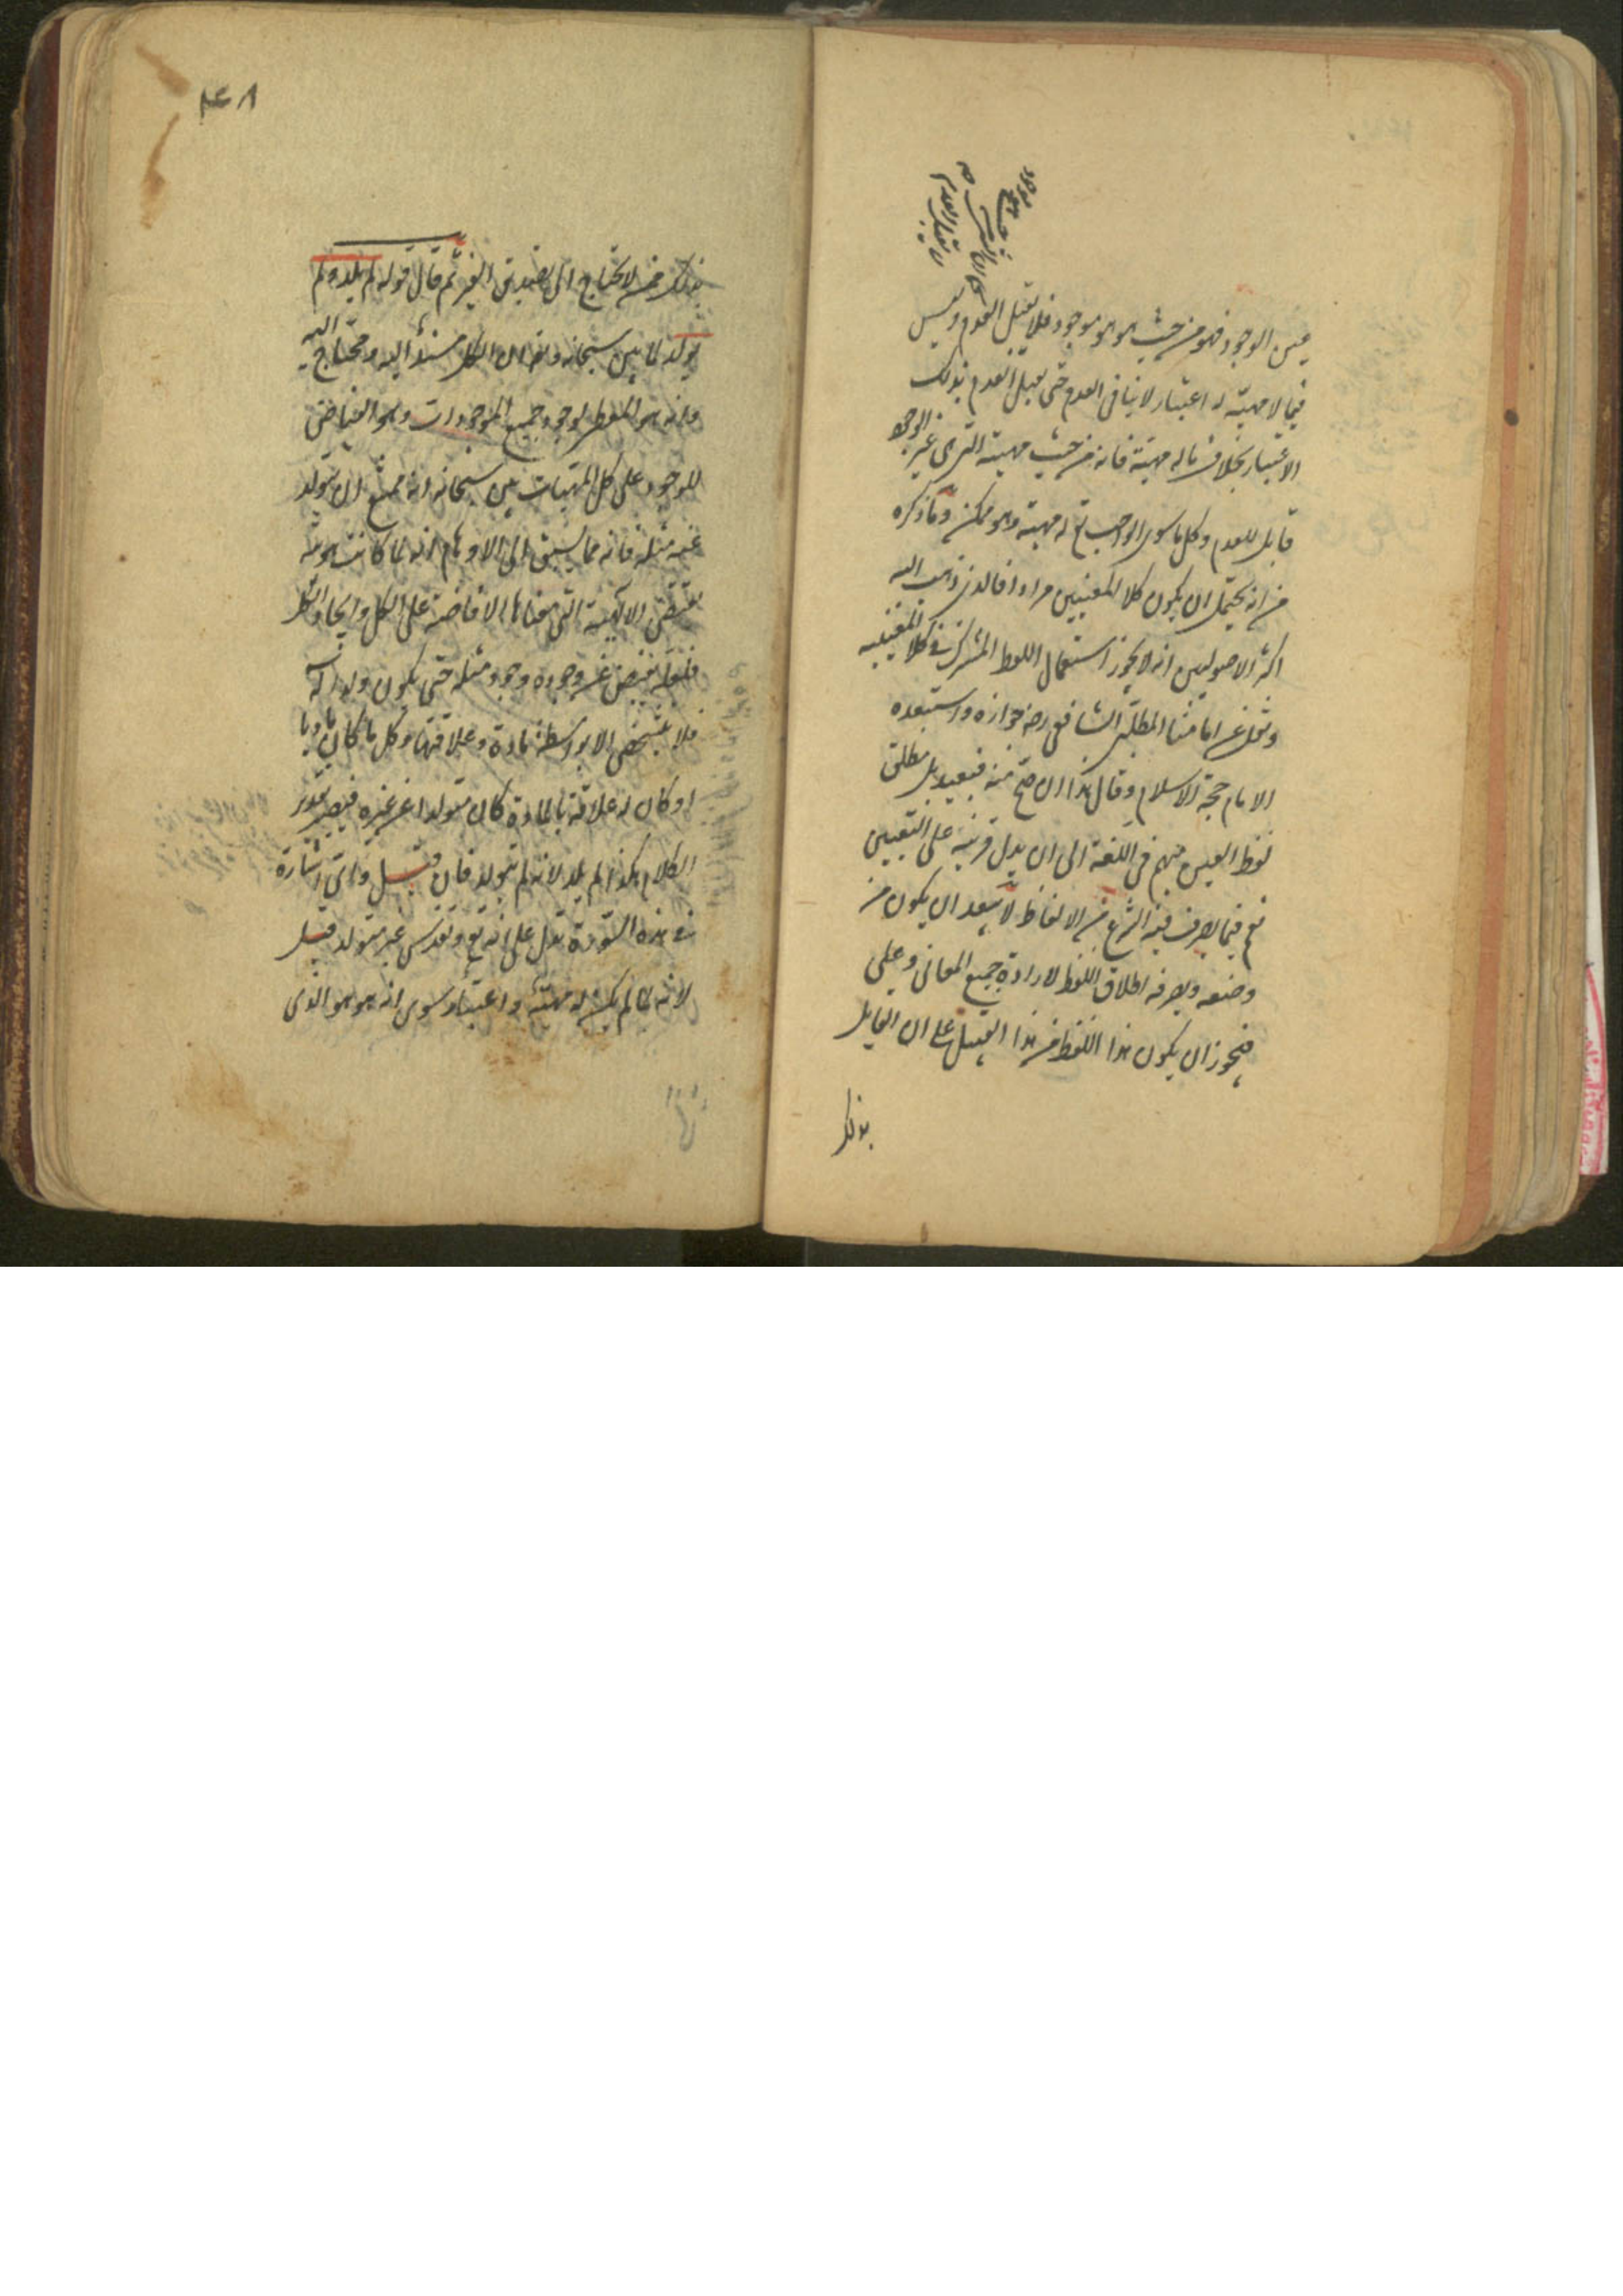 عين الوجود فهو من حيث هو هو موجود فلا يقبل العدم وليس
فيما لا مهية له اعتبار لا ينافى العدم حتى يقبل العدم بذلك
الاعتبار بخلاف ما له مهية فانه من حيث مهيته التى هى غير الوجود
قابل للعدم وكل ما سوى الواجب تع له مهية وهو ممكن وما ذكره
من انه يحتمل ان يكون كلا المعنيين مرادا فالذى ذهب اليه
اكثر الاصوليين انه لا يجوز استعمال اللفظ المشترك فى كلا المعنيين
ونقل عن امامنا المطلبى الشافعى رضه جوازه واستبعده
الامام حجة الاسلام وقال هذا ان صح منه فبعيد بل مطلق
لفظ العين مبهم فى اللغة الى ان يدل قرينة على التعيين
نعم فيما يصرف فيه الشرع من الالفاظ لا يبعد ان يكون من
وضعه وتصرفه اطلاق اللفظ لارادة جميع المعانى وعلى
فيجوز ان يكون هذا اللفظ من هذا القبيل على ان القايل
بذلك
٢٤٨
بذلك لا يحتاج الى تصديق الغير ثم قال قوله لم يلد ولم
يولد لما بين سبحانه وتع ان الكل مستند اليه ومحتاج اليه
وانه هو المعطى لوجود جميع الموجودات وهو الفياض
للوجود على كل المهيات بين سبحانه انه ممتنع ان يتولد
عنه مثله فانه مما يسبق الى الاوهام انه لما كانت هويته
تقتضى الالهية التى معناها الافاضة على الكل وايجاد الكل
فلعله يفيض عن وجوده وجود مثله حتى يكون ولدا له
فلا يتشخص الا بواسطة مادة وعلاقتها وكل ما كان ماديا
او كان له علاقة بالمادة كان متولدا عن غيره فيصير تقدير
الكلام هكذا لم يلد لانه لم يتولد فان قيل واى اشارة
فى هذه السورة تدل على انه تع وتقدس غير متولد قيل
لانه لما لم يكن له مهية واعتبار سوى انه هو هو الذى